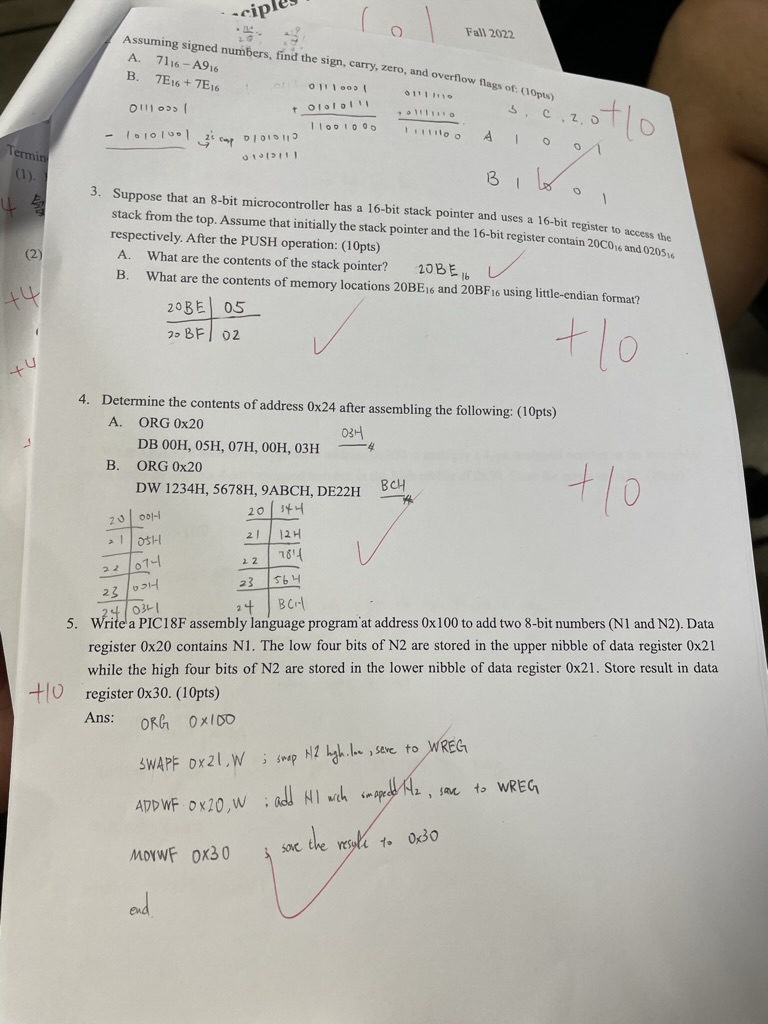 101
Fall 2022
Assuming signed numbers, find the sign, carry, zero, and overflow flags of: (10pts)
A. 71₁₆ – A9₁₆
B. 7E₁₆ + 7E₁₆
01110001
- 10101001 2's cmp 01010110
01010111
01110001
+ 01010111
11001000
01111110
+ 01111110
11111100
S, C, Z, O
A 1 0 0 1
B 1 0 0 1
+10
Termin
(1).
(2)
+4
+4
3. Suppose that an 8-bit microcontroller has a 16-bit stack pointer and uses a 16-bit register to access the
stack from the top. Assume that initially the stack pointer and the 16-bit register contain 20C0₁₆ and 0205₁₆
respectively. After the PUSH operation: (10pts)
A. What are the contents of the stack pointer? 20BE₁₆
B. What are the contents of memory locations 20BE₁₆ and 20BF₁₆ using little-endian format?
20BE 05
20BF 02
+10
4. Determine the contents of address 0x24 after assembling the following: (10pts)
A. ORG 0x20
DB 00H, 05H, 07H, 00H, 03H 03H
B. ORG 0x20
DW 1234H, 5678H, 9ABCH, DE22H BCH
+10
20 00H
21 05H
22 07H
23 00H
24 03H
20 34H
21 12H
22 78H
23 56H
24 BCH
5. Write a PIC18F assembly language program at address 0x100 to add two 8-bit numbers (N1 and N2). Data
register 0x20 contains N1. The low four bits of N2 are stored in the upper nibble of data register 0x21
while the high four bits of N2 are stored in the lower nibble of data register 0x21. Store result in data
+10 register 0x30. (10pts)
Ans: ORG 0x100
SWAPF 0x21, W ; swap N2 high.low, save to WREG
ADDWF 0x20, W ; add N1 with swapped N2, save to WREG
MOVWF 0x30 ; save the result to 0x30
end